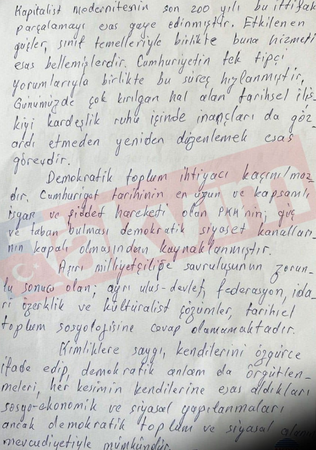 Kapitalist modernitenin son 200 yılı bu ittifakı
parçalamayı esas gaye edinmiştir. Etkilenen
güçler, sınıf temelleriyle birlikte buna hizmeti
esas bellemişlerdir. Cumhuriyetin tek tipçi
yorumlarıyla birlikte bu süreç hızlanmıştır,
Günümüzde çok kırılgan hal alan tarihsel iliş-
kiyi kardeşlik ruhu içinde inançları da göz
ardı etmeden yeniden düzenlemek esas
görevdir.
Demokratik toplum ihtiyacı kaçınılmaz-
dır. Cumhuriyet tarihinin en uzun ve kapsamlı
isyan ve şiddet hareketi olan PKK'nin; güç
ve taban bulması demokratik siyaset kanalları-
nın kapalı olmasından kaynaklanmıştır.
Aşırı milliyetçiliğe savruluşunun zorun-
lu sonucu olan; ayrı ulus-devlet, federasyon, ida-
ri özerklik ve kültüralist çözümler, tarihsel
toplum sosyolojisine cevap olamamaktadır.
Kimliklere saygı, kendilerini özgürce
ifade edip, demokratik anlam da örgütlen-
meleri, her kesimin kendilerine esas aldıkları
sosyo-ekonomik ve siyasal yapılanmaları
ancak demokratik toplum ve siyasal alanın
mevcudiyetiyle mümkündür.